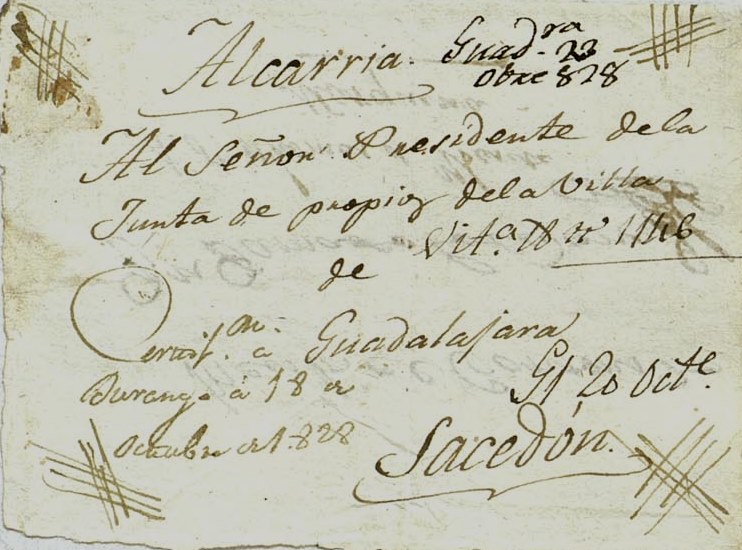 Alcarria. Guad.ra 23
Obre 828
Al Señor Presidente dela
Junta de propios dela Villa
Vit.a
de
Certif.on a Guadalajara
Durango à 18 de
Octubre de 1.828
G/ 20 Octe.
Sacedón.